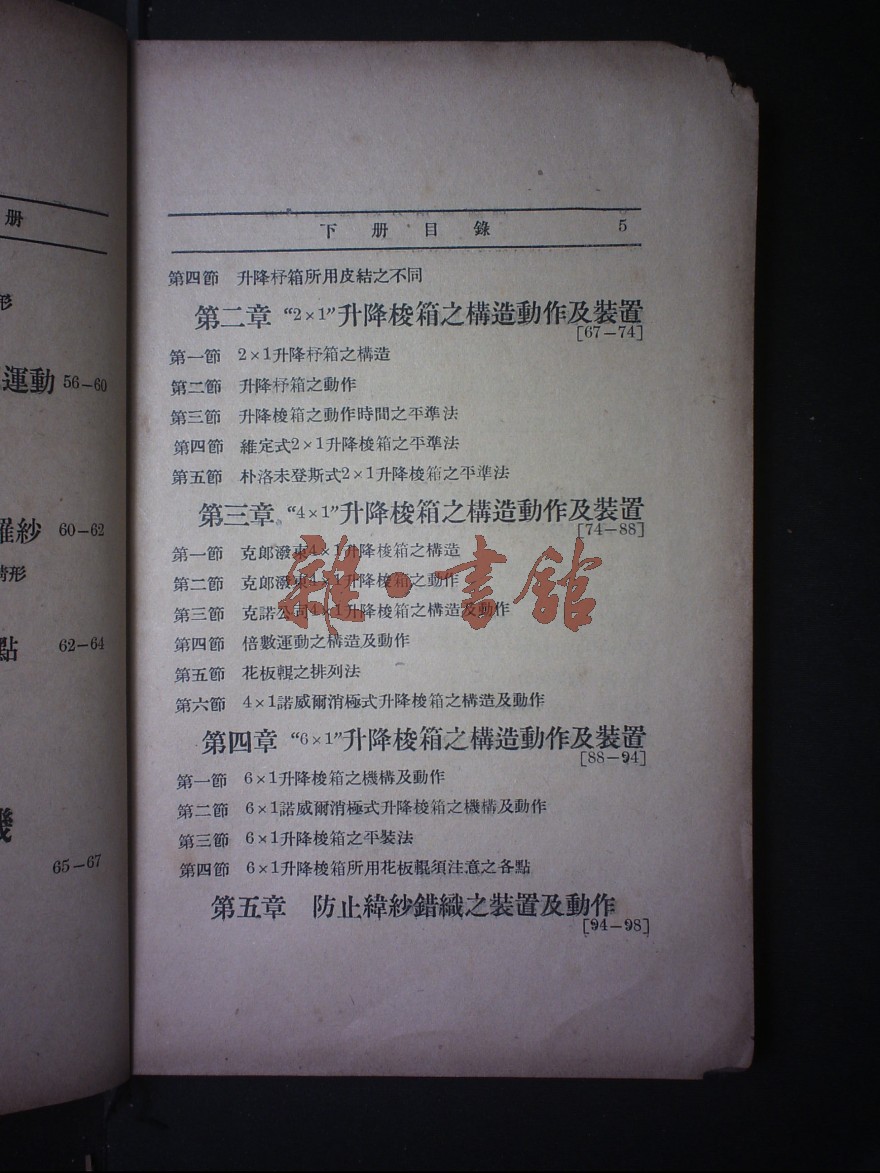 册
形
運動 56—60
羅紗 60—62
情形
點 62—64
機
65—67
下册目錄 5
第四節 升降杼箱所用皮結之不同
第二章 “2×1”升降梭箱之構造動作及裝置
[67—74]
第一節 2×1升降杼箱之構造
第二節 升降杼箱之動作
第三節 升降梭箱之動作時間之平準法
第四節 維定式2×1升降梭箱之平準法
第五節 朴洛未登斯式2×1升降梭箱之平準法
第三章 “4×1”升降梭箱之構造動作及裝置
[74—88]
第一節 克郎潑東4×1升降梭箱之構造
第二節 克郎潑東4×1升降梭箱之動作
第三節 克諾公司4×1升降梭箱之構造及動作
第四節 倍數運動之構造及動作
第五節 花板輥之排列法
第六節 4×1諾威爾消極式升降梭箱之構造及動作
第四章 “6×1”升降梭箱之構造動作及裝置
[88—94]
第一節 6×1升降梭箱之機構及動作
第二節 6×1諾威爾消極式升降梭箱之機構及動作
第三節 6×1升降梭箱之平裝法
第四節 6×1升降梭箱所用花板輥須注意之各點
第五章 防止緯紗錯織之裝置及動作
[94—98]
雜·書館